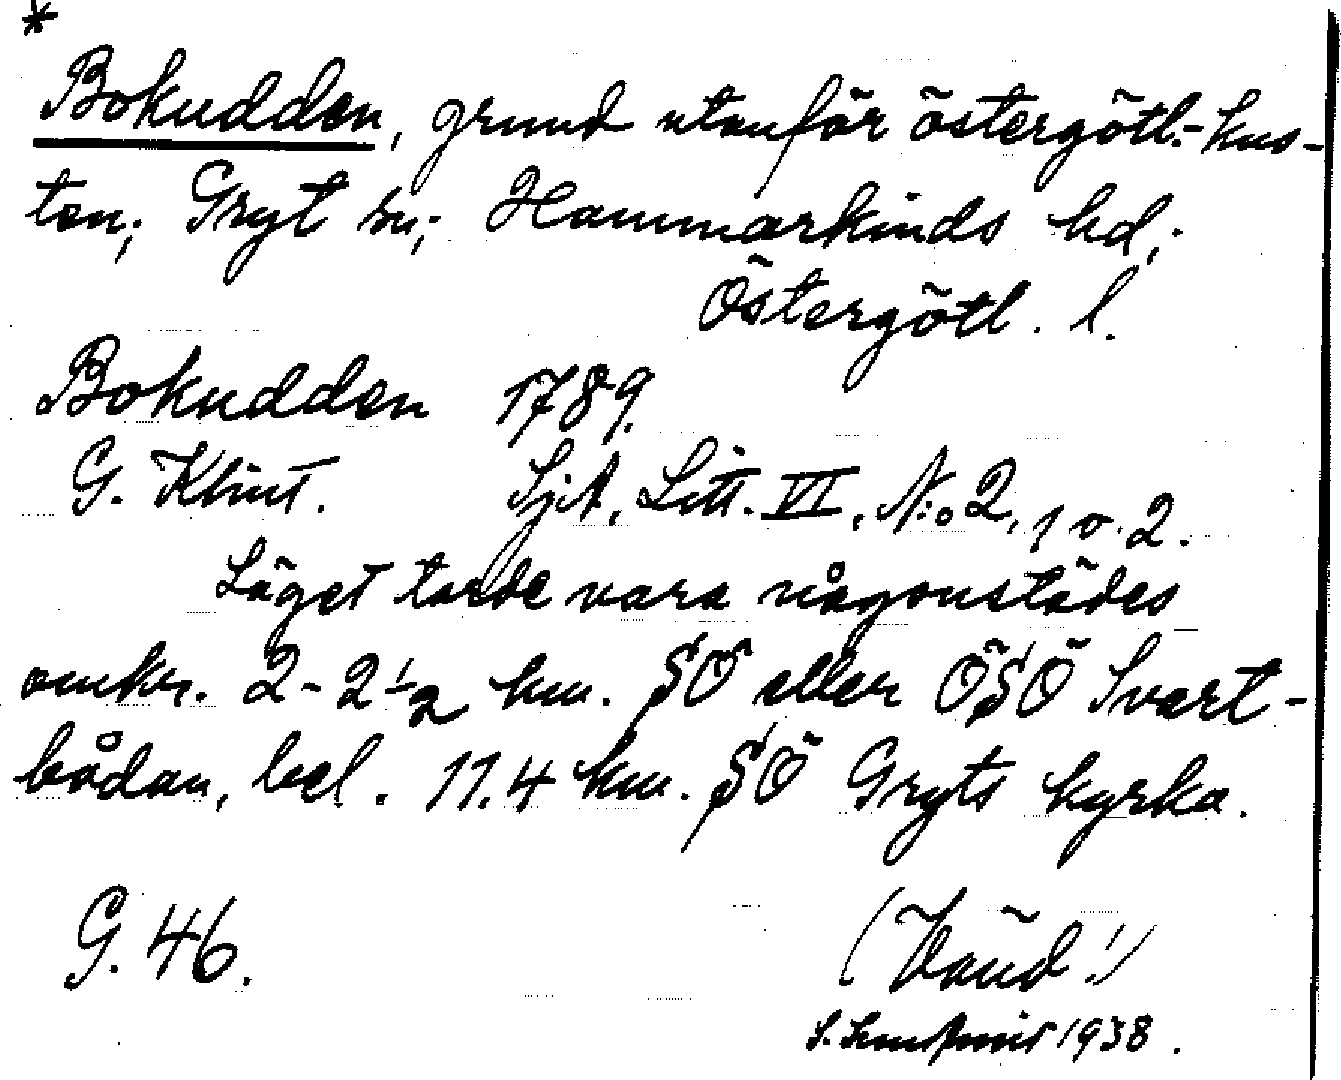 *
Bokudden, grund utanför östergötl.-kus-
ten; Gryt sn; Hammarkinds hd;
Östergötl. l.
Bokudden 1789.
G. Klint. SjA, Litt. VI, N:o 2, 1 o. 2.
Läget torde vara någonstädes
omkr. 2-2 1/2 km. SÖ eller ÖSÖ Svart-
bådan, bel. 11.4 km. SÖ Gryts kyrka.
G. 46. (Vänd!)
S. 1938.